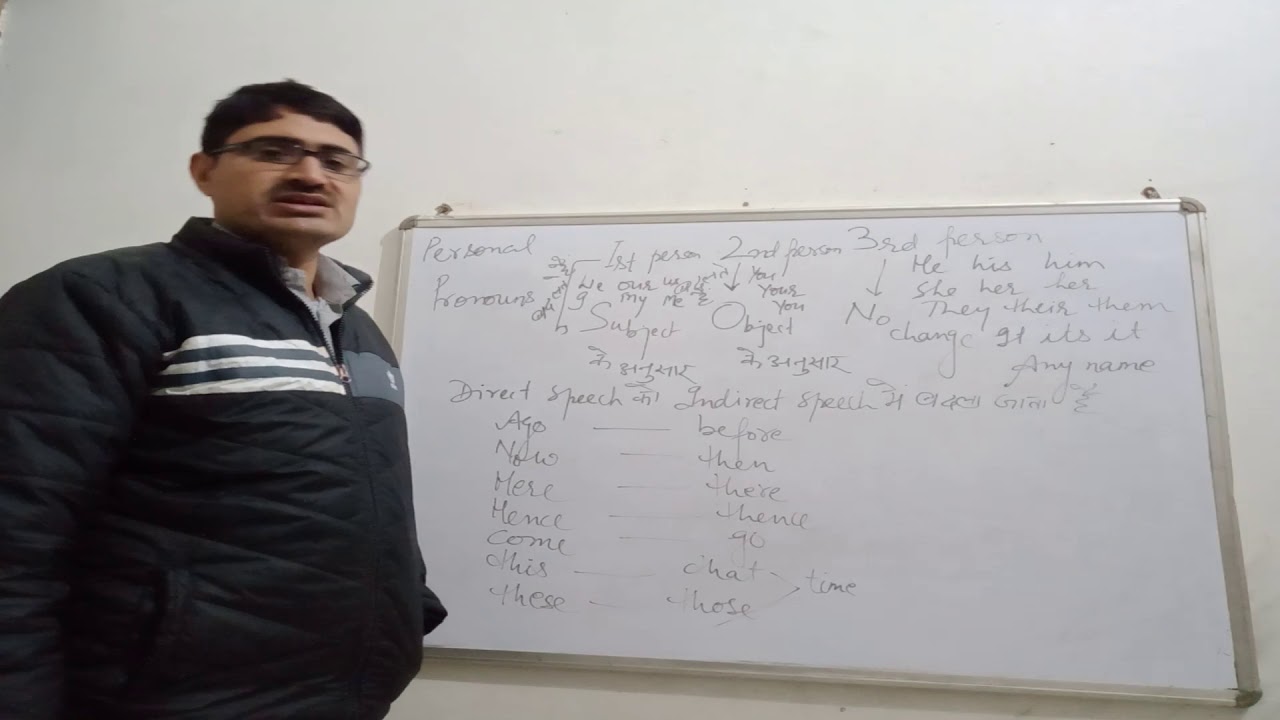 Personal Ist person 2nd person 3rd person
Pronouns We our us You He his him
I my me Your She her her
You They their them
Subject Object No change It its it
के अनुसार के अनुसार Any name
Direct speech को Indirect speech में बदला जाता है
Ago before
Now then
Here there
Hence thence
Come go
this that
time
these those